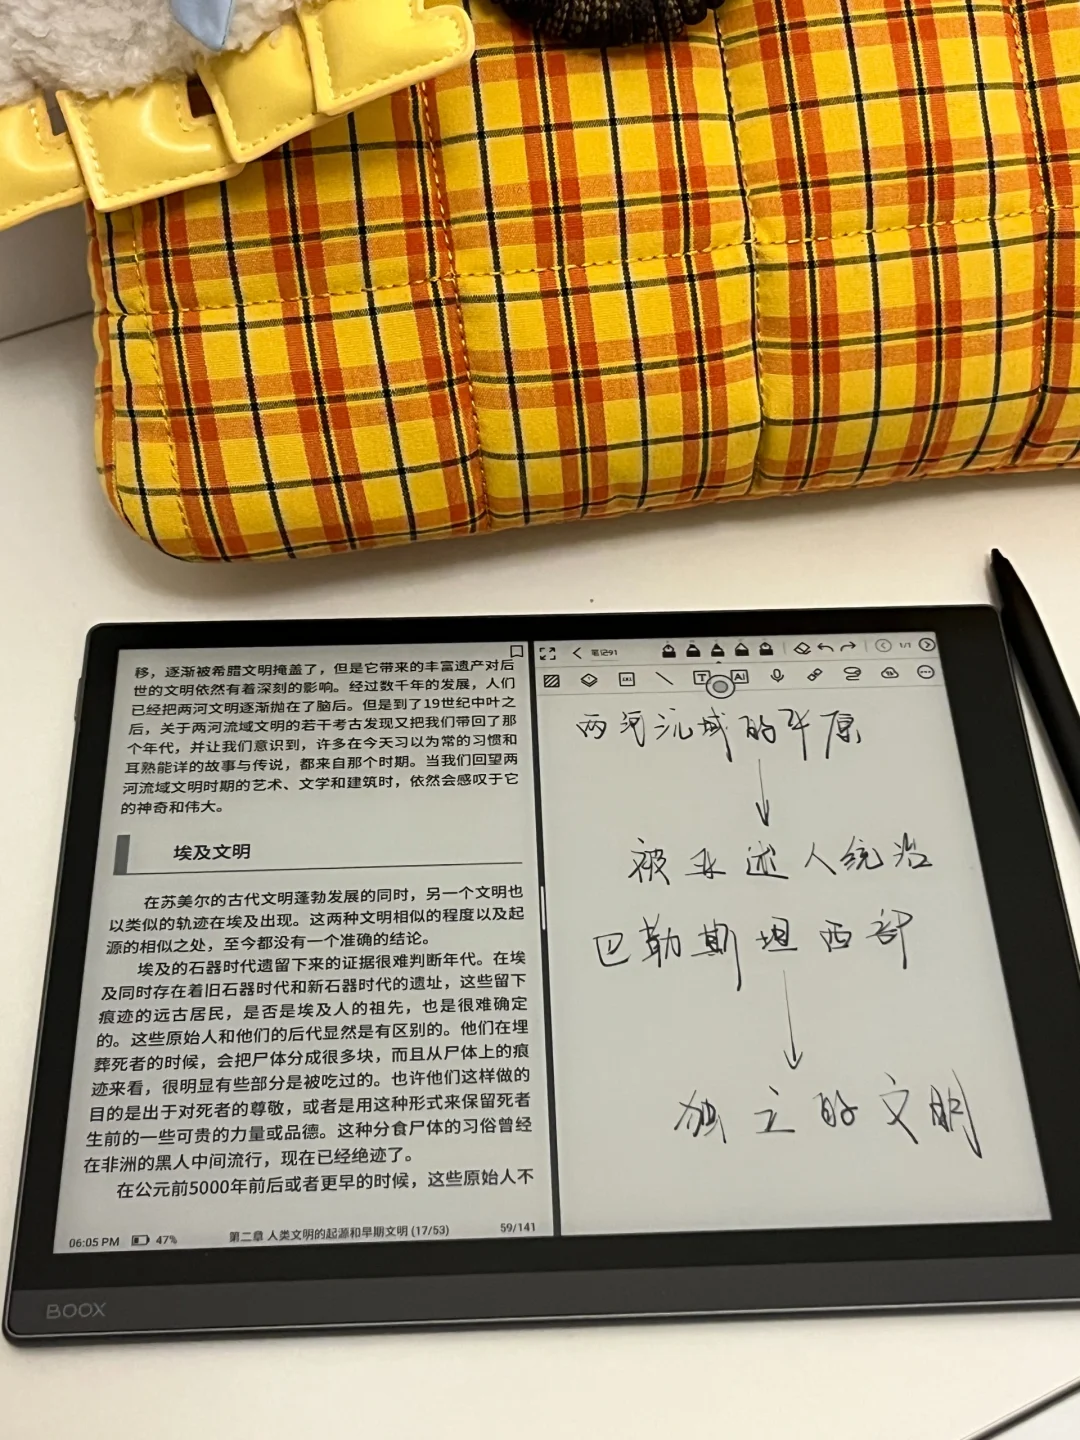 移，逐渐被希腊文明掩盖了，但是它带来的丰富遗产对后
世的文明依然有着深刻的影响。经过数千年的发展，人们
已经把两河文明逐渐抛在了脑后。但是到了19世纪中叶之
后，关于两河流域文明的若干考古发现又把我们带回了那
个年代，并让我们意识到，许多在今天习以为常的习惯和
耳熟能详的故事与传说，都来自那个时期。当我们回望两
河流域文明时期的艺术、文学和建筑时，依然会感叹于它
的神奇和伟大。
埃及文明
在苏美尔的古代文明蓬勃发展的同时，另一个文明也
以类似的轨迹在埃及出现。这两种文明相似的程度以及起
源的相似之处，至今都没有一个准确的结论。
埃及的石器时代遗留下来的证据很难判断年代。在埃
及同时存在着旧石器时代和新石器时代的遗址，这些留下
痕迹的远古居民，是否是埃及人的祖先，也是很难确定
的。这些原始人和他们的后代显然是有区别的。他们在埋
葬死者的时候，会把尸体分成很多块，而且从尸体上的痕
迹来看，很明显有些部分是被吃过的。也许他们这样做的
目的是出于对死者的尊敬，或者是用这种形式来保留死者
生前的一些可贵的力量或品德。这种分食尸体的习俗曾经
在非洲的黑人中间流行，现在已经绝迹了。
在公元前5000年前后或者更早的时候，这些原始人不
06:05 PM 47% 第二章 人类文明的起源和早期文明 (17/53) 59/141
笔记91 1/1
T AI
两河流域的平原
被亚述人统治
巴勒斯坦西部
独立的文明
BOOX